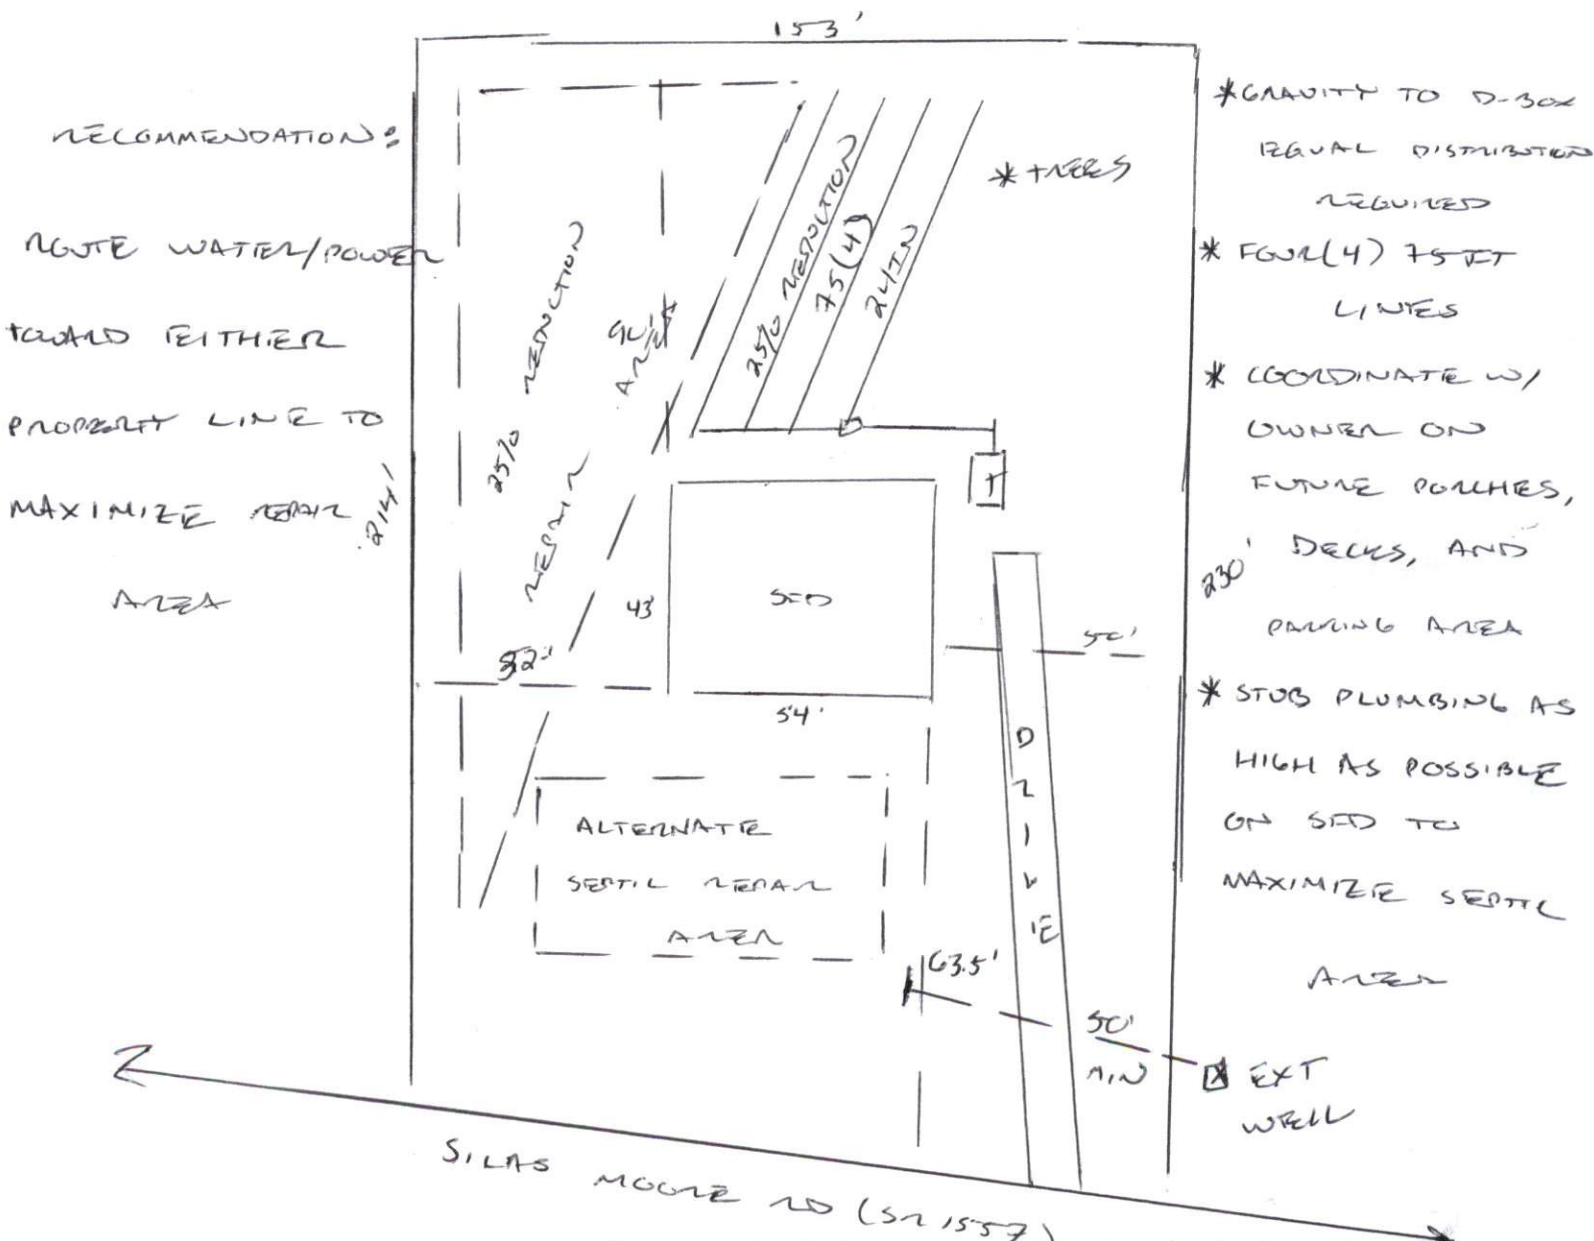 153'
RECOMMENDATION:
ROUTE WATER/POWER
TOWARD EITHER
PROPERTY LINE TO
MAXIMIZE REPAIR
AREA
214'
25% REDUCTION
REPAIR
AREA
25% REDUCTION
75(4)
24IN
* TREES
T
43'
SFD
54'
50'
DRIVE
ALTERNATE
SEPTIC REPAIR
AREA
63.5'
50'
MIN
EXT
WELL
230'
* GRAVITY TO D-BOX
EQUAL DISTRIBUTION
REQUIRED
* FOUR(4) 75 FT
LINES
* COORDINATE W/
OWNER ON
FUTURE PORCHES,
DECKS, AND
PARKING AREA
* STUB PLUMBING AS
HIGH AS POSSIBLE
ON SFD TO
MAXIMIZE SEPTIC
AREA
SILAS MOORE RD (SR 1557)